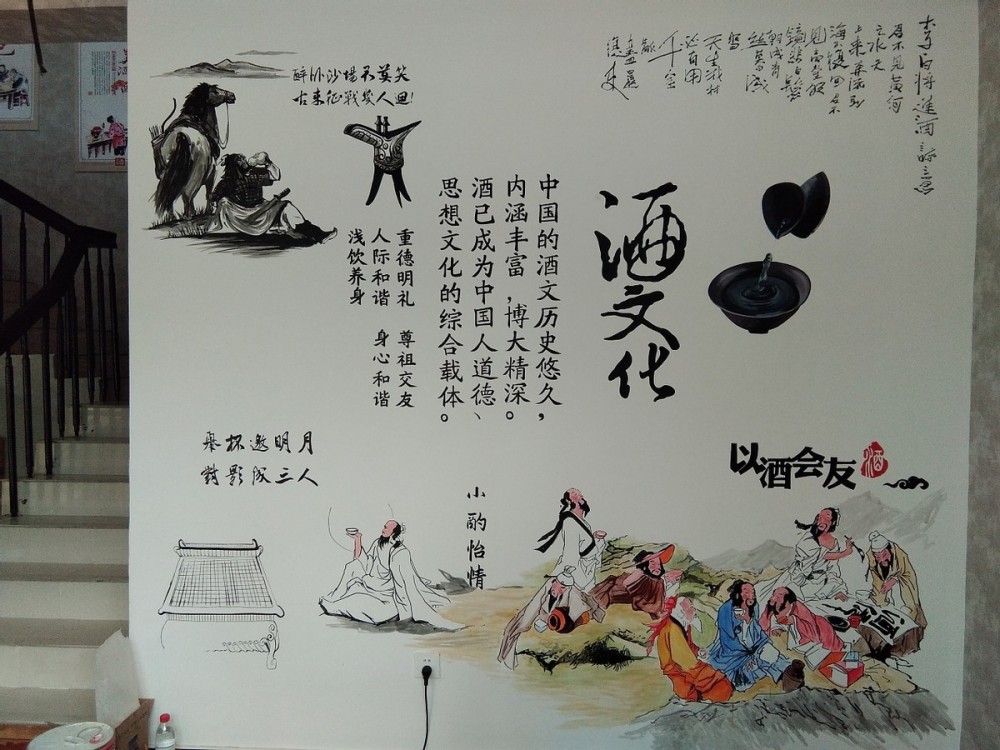 李白将进酒诗意
君不见黄河
之水天
上来奔流到
海不复回君不
天生我材
必有用
醉卧沙場君莫笑
古来征戰幾人回!
酒文化
中国的酒文历史悠久,
内涵丰富,博大精深。
酒已成为中国人道德、
思想文化的综合载体。
重德明礼 尊祖交友
人际和谐 身心和谐
浅饮养身
舉杯邀明月
對影成三人
小酌怡情
以酒会友
酒